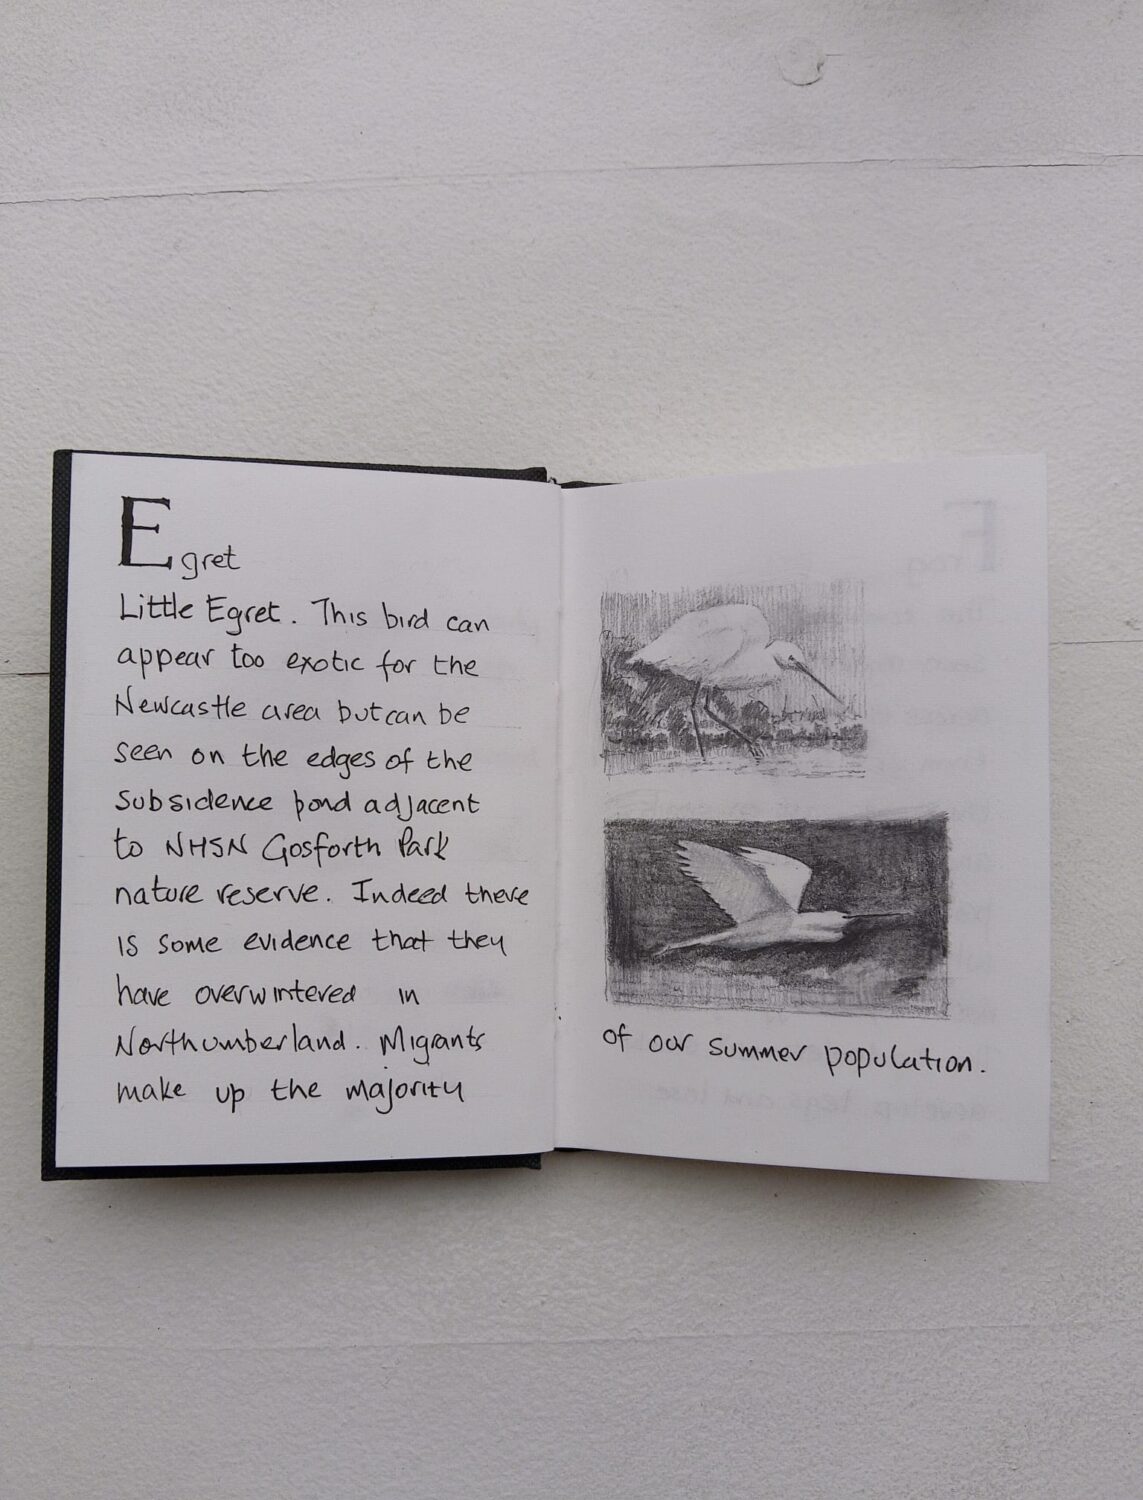 Egret
Little Egret. This bird can
appear too exotic for the
Newcastle area but can be
seen on the edges of the
subsidence pond adjacent
to NHSN Gosforth Park
nature reserve. Indeed there
is some evidence that they
have overwintered in
Northumberland. Migrants
make up the majority
of our summer population.